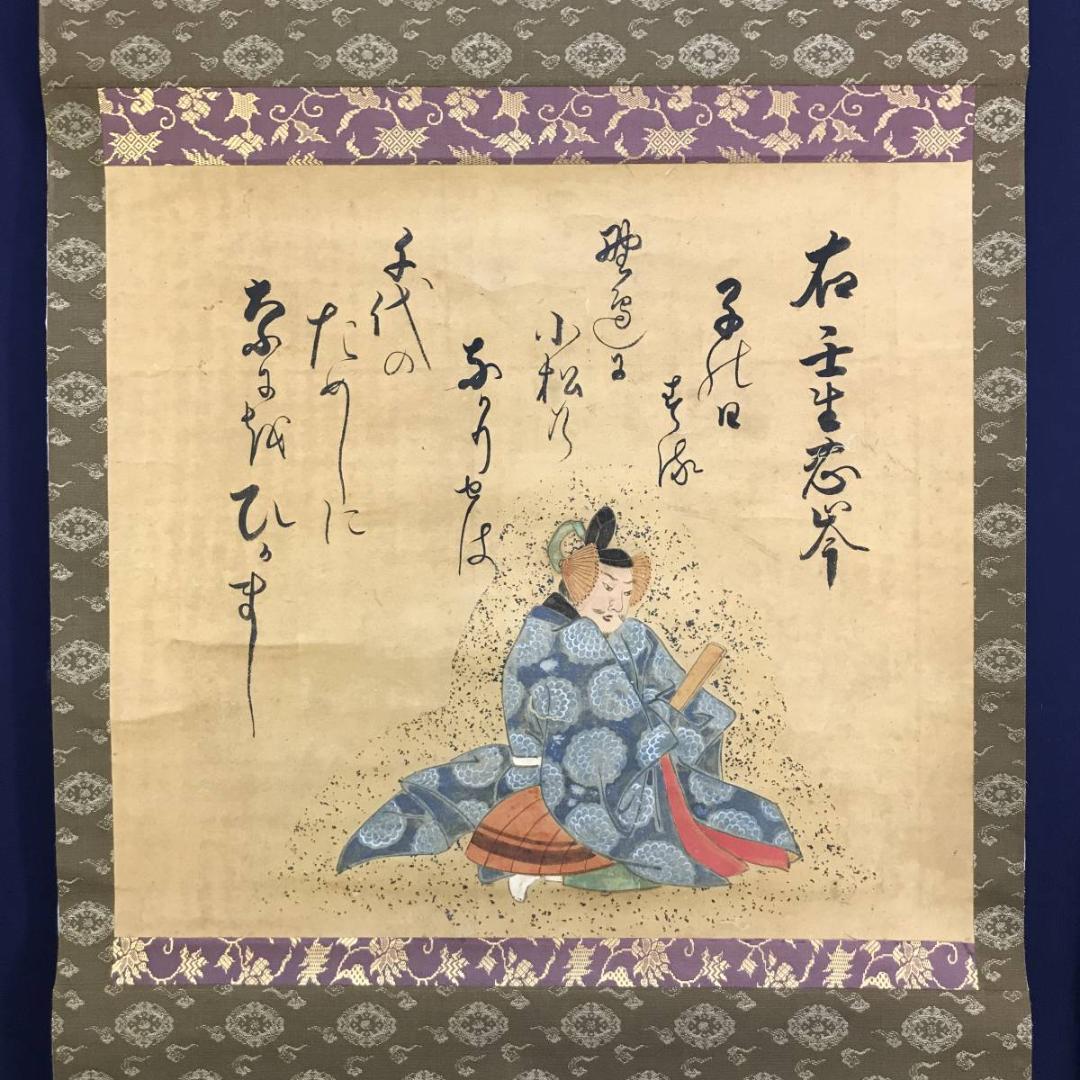 右 壬生忠岑
子の日
する
野邊に
小松の
なかりせは
千代の
ためしに
なにを
ひかまし